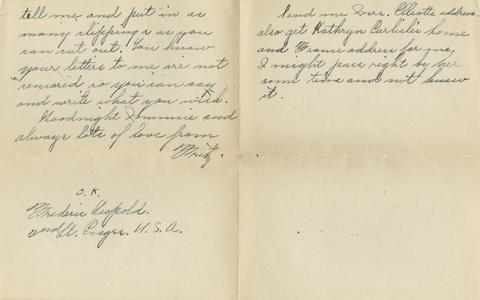 tell me, and put in as
many clippings as you
can cut out. You know
your letters to me are not
censored so you can say
and write what you wish.
Goodnight and
always lots of love from
Fritz.
O.K.
Frederic Leopold.
2nd Lt. Engrs. U.S.A.
Send me Mrs. address
also get Kathryn Carlisle's home
and address for me,
I might pass right by her
some time and not know
it.